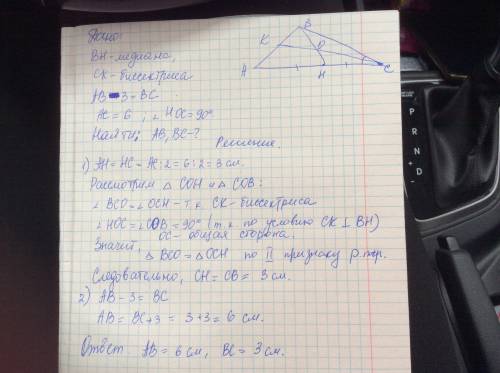 Дано:
BH - медиана,
CK - биссектриса
AB - 3 = BC
AC = 6, ∠HOC = 90°
Найти: AB, BC - ?
B
K
O
A
H
C
Решение.
1) AH = HC = AC : 2 = 6 : 2 = 3 см.
Рассмотрим △ COH и △ COB:
∠ BCO = ∠ OCH - т.к. CK - биссектриса
∠ HOC = ∠ COB = 90° (т.к. по условию CK ⊥ BH)
OC - общая сторона.
Значит, △ BCO = △ OCH по II признаку р. тр.
Следовательно, CH = CB = 3 см.
2) AB - 3 = BC
AB = BC + 3 = 3 + 3 = 6 см.
Ответ: AB = 6 см, BC = 3 см.
P
R
N
D
+
-